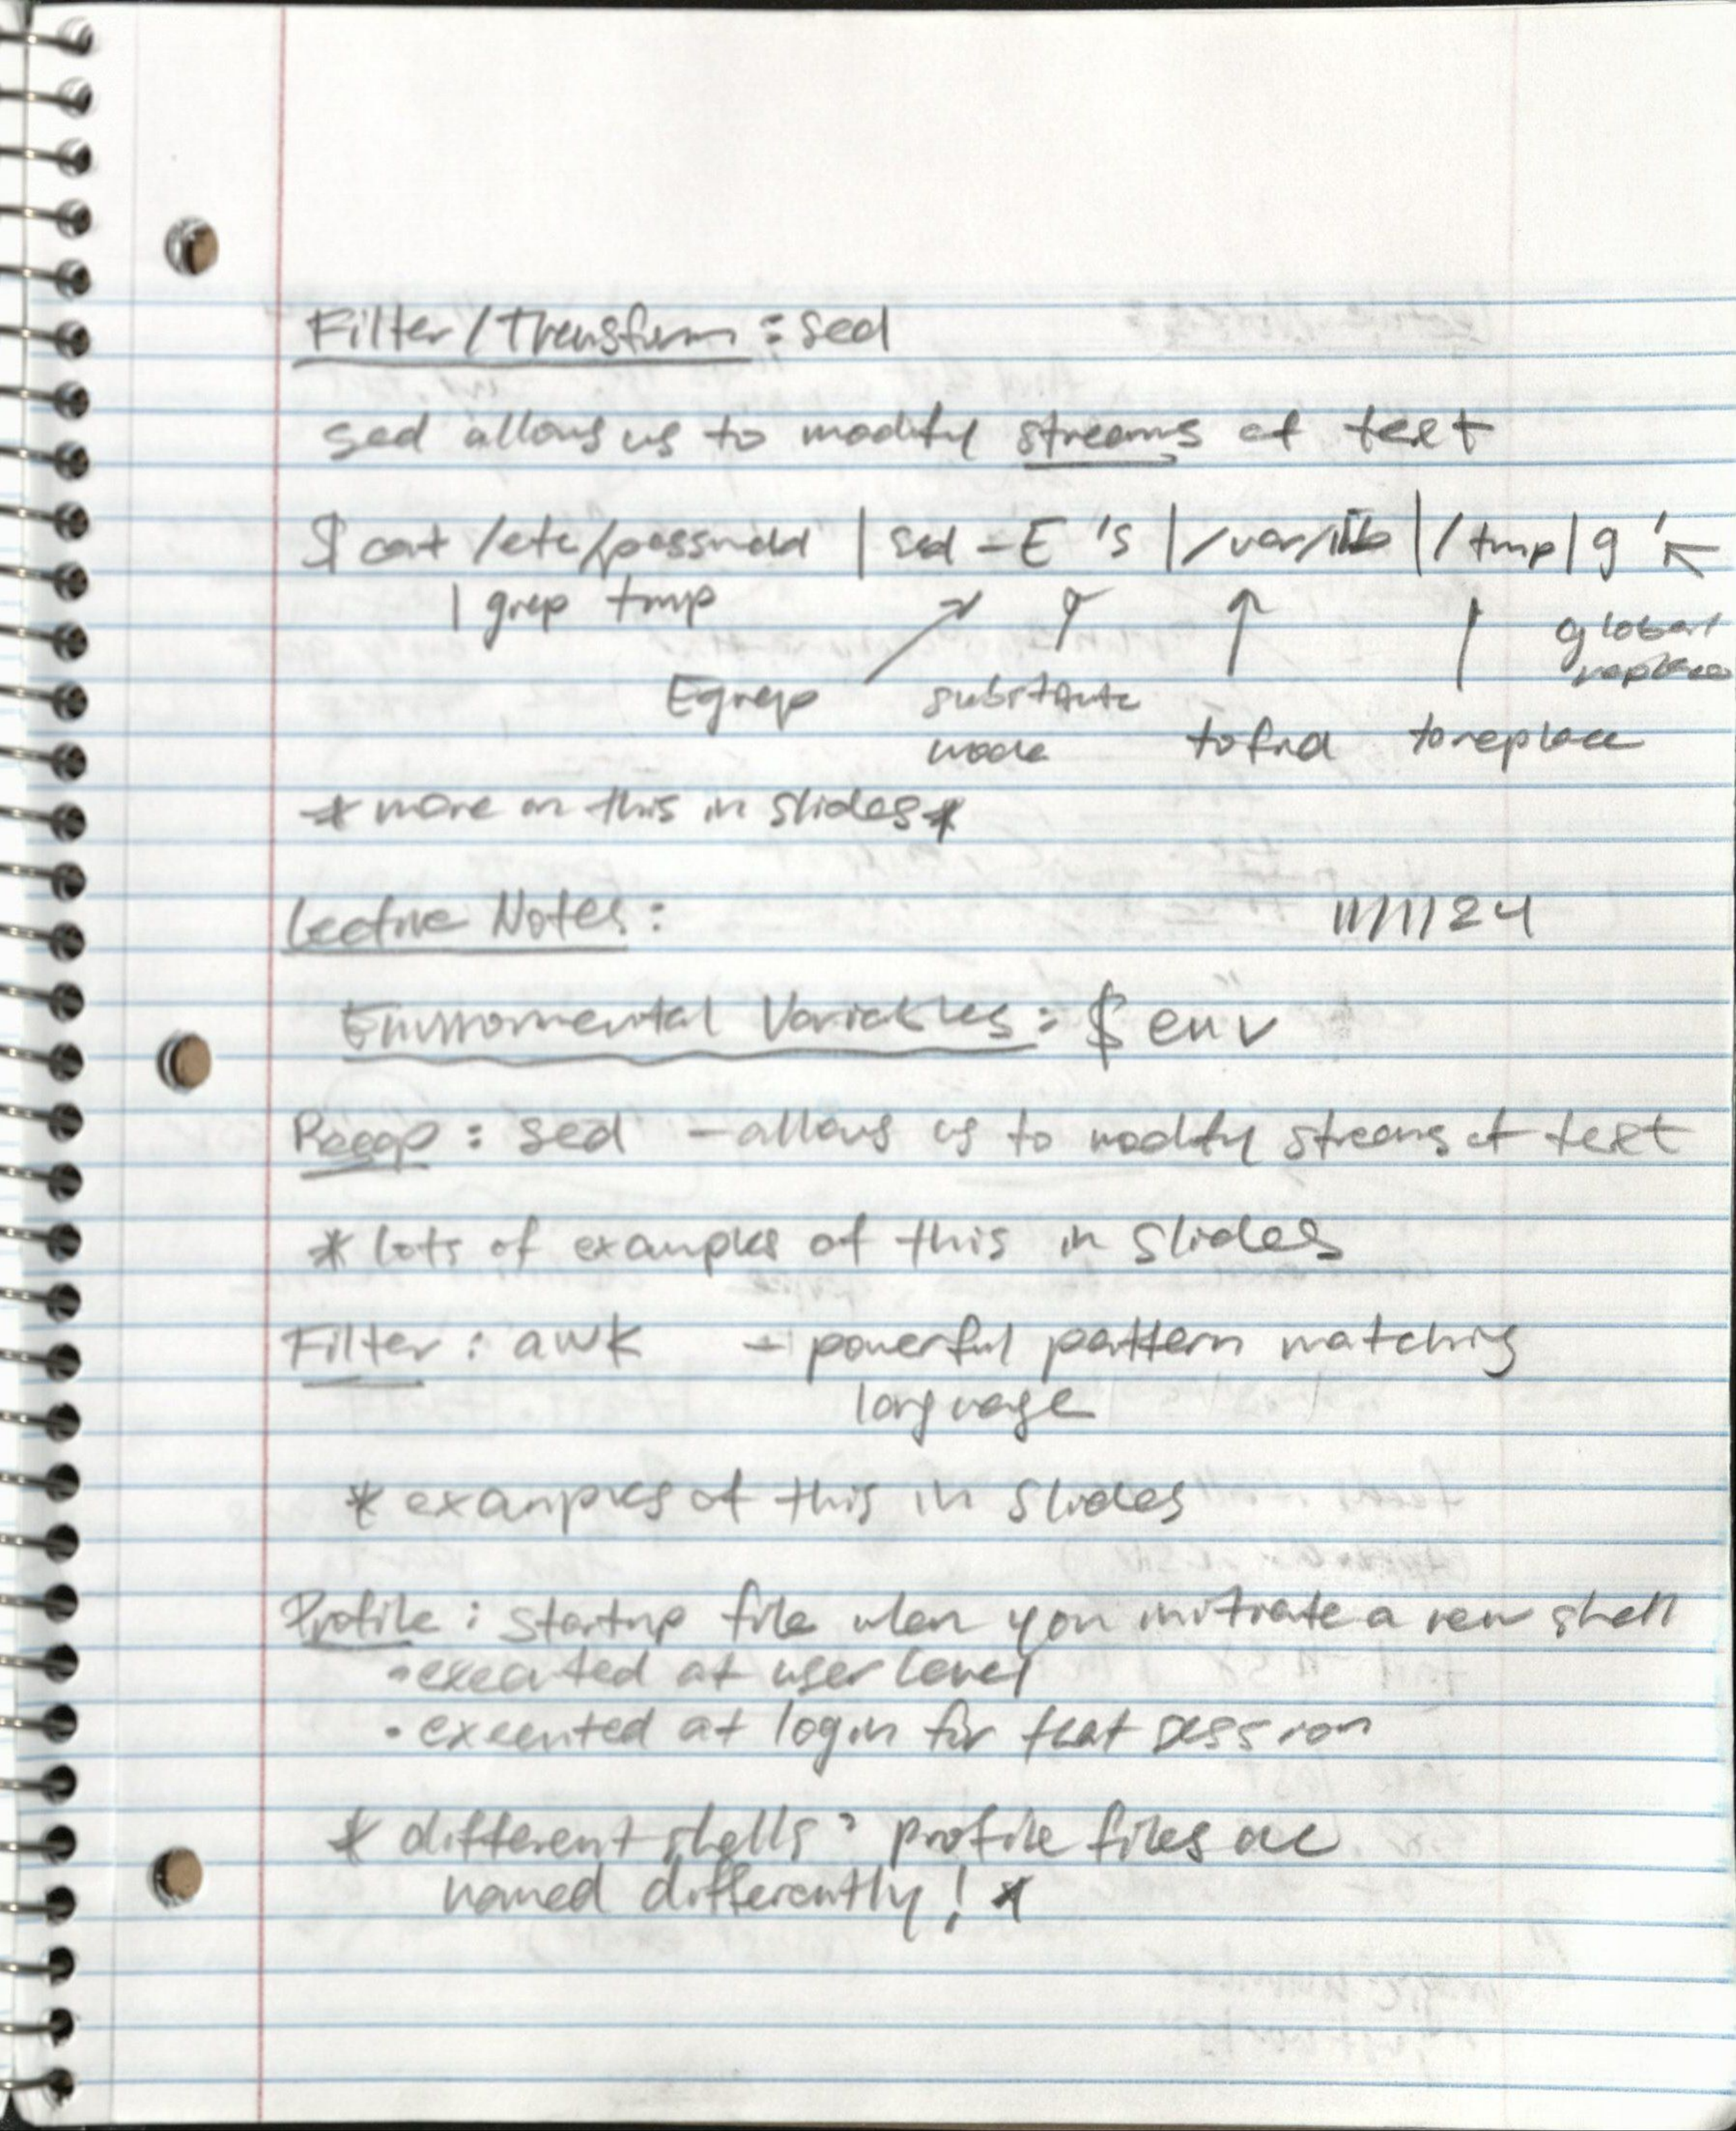 Filter/Transform : sed
sed allows us to modify streams of text
$ cat /etc/passwdd | sed -E 's|/var/lib|/tmp|g'
| grep tmp
Egrep substitute mode to find to replace global replace
* more on this in slides *
Lecture Notes : 11/1/24
Enviromental Variables : $ env
Recap : sed - allows us to modify streams of text
* lots of examples of this in slides
Filter : awk - powerful pattern matching
language
* examples of this in slides
Profile : startup file when you initiate a new shell
• executed at user level
• executed at login for that session
* different shells : profile files are
named differently! *